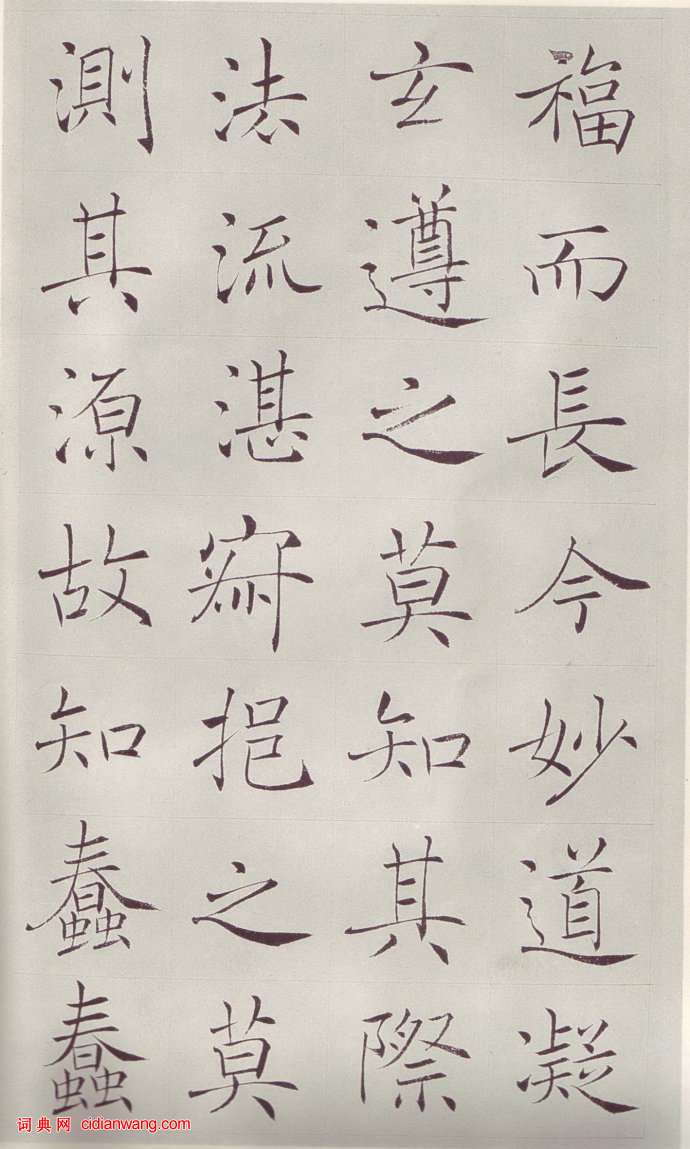 福而長今妙道凝
玄遵之莫知其際
法流湛寂挹之莫
測其源故知蠢蠢
词典网 cidianwang.com